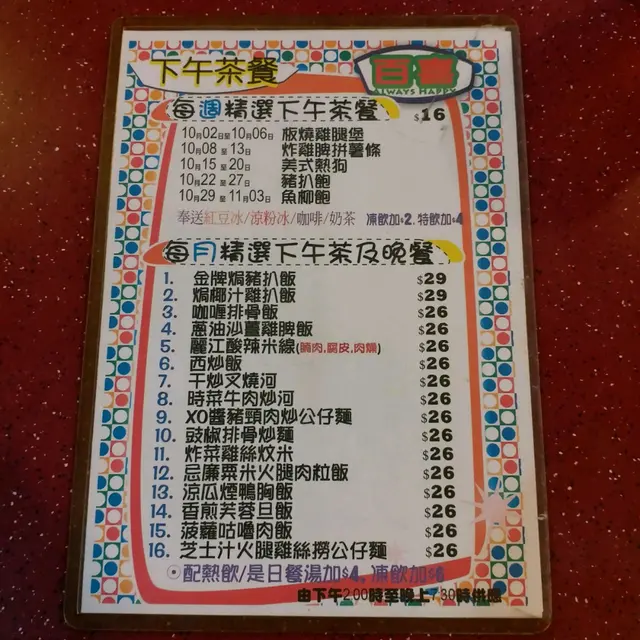 下午茶餐
百喜
ALWAYS HAPPY
每週精選下午茶餐 $16
10月02日至10月06日 板燒雞腿堡
10月08 至 13日 炸雞脾拼薯條
10月15 至 20日 美式熱狗
10月22 至 27日 豬扒飽
10月29 至 11月03日 魚柳飽
奉送紅豆冰/涼粉冰/咖啡/奶茶 凍飲加$2. 特飲加$4
每月精選下午茶及晚餐
1. 金牌焗豬扒飯 $29
2. 焗椰汁雞扒飯 $29
3. 咖喱排骨飯 $26
4. 蔥油沙薑雞脾飯 $26
5. 麗江酸辣米線(腩肉,腐皮,肉燥) $26
6. 西炒飯 $26
7. 干炒叉燒河 $26
8. 時菜牛肉炒河 $26
9. XO醬豬頸肉炒公仔麵 $26
10. 豉椒排骨炒麵 $26
11. 炸菜雞絲炆米 $26
12. 忌廉粟米火腿肉粒飯 $26
13. 涼瓜煙鴨胸飯 $26
14. 香煎芙蓉旦飯 $26
15. 菠蘿咕嚕肉飯 $26
16. 芝士汁火腿雞絲撈公仔麵 $26
⊙配熱飲/是日餐湯加$4, 凍飲加$6
由下午2:00時至晚上7:30時供應